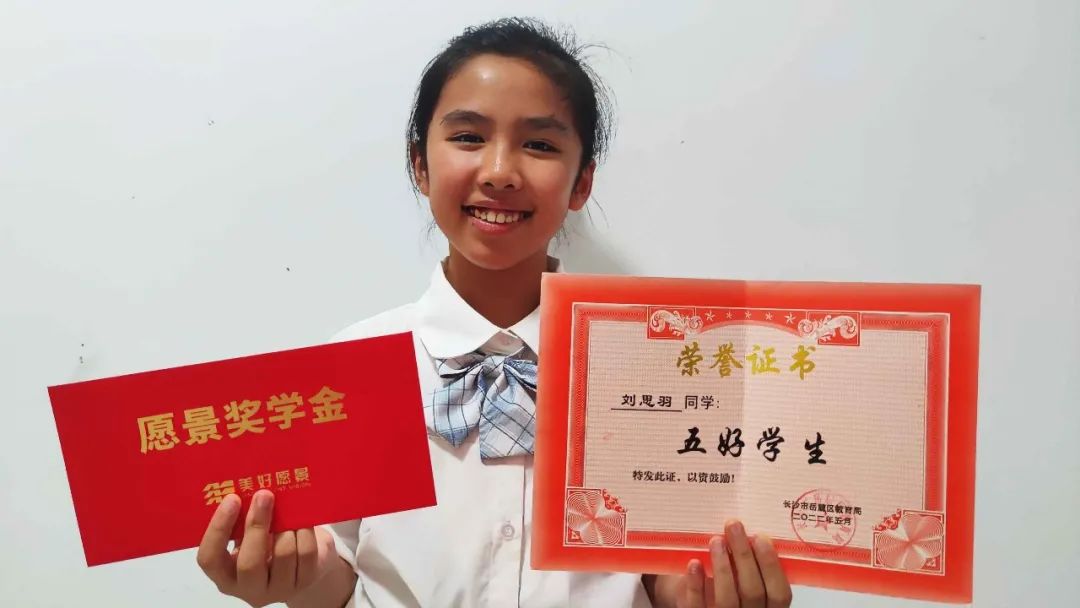 愿景奖学金
美好愿景
荣誉证书
刘思羽 同学:
五好学生
特发此证，以资鼓励!
长沙市岳麓区教育局
二〇二二年五月